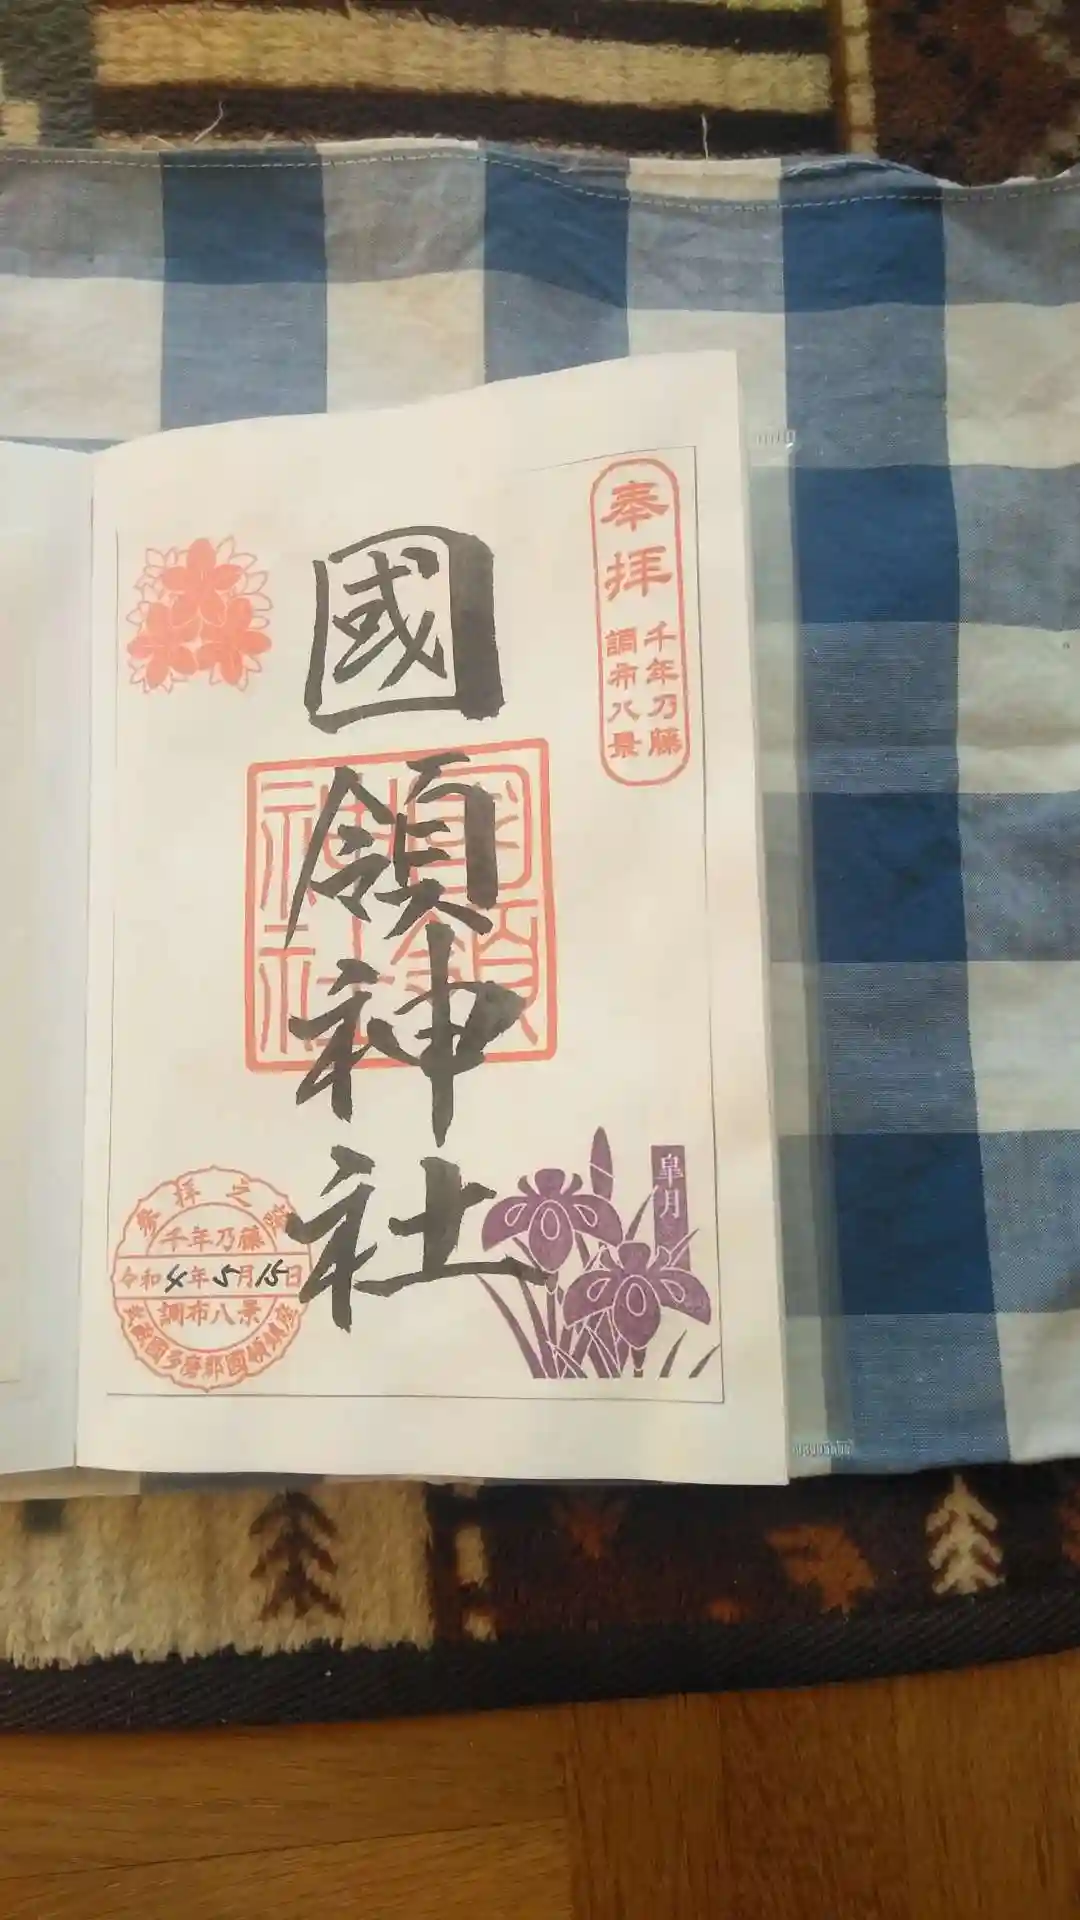 奉拝
千年乃藤
調布八景
國領神社
國領
神社
皐月
参拝之證
千年乃藤
令和4年5月15日
調布八景
武蔵國多磨郡國領鎮座